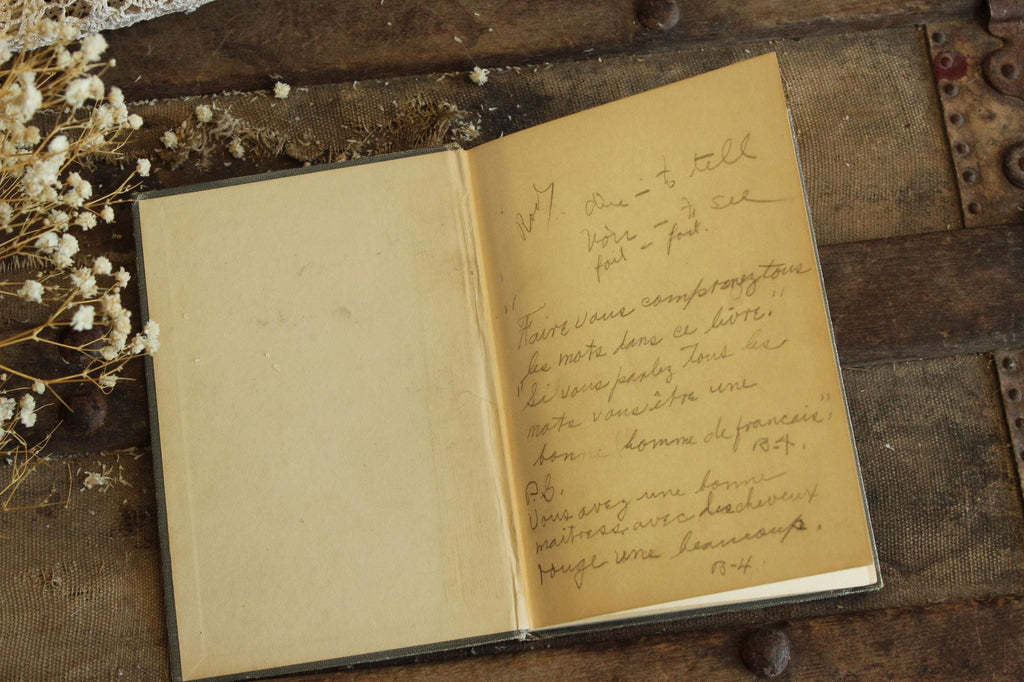 dire - to tell
voir - to see
fort - fort.
"Faire vous comprenez tous
les mots dans ce livre."
"Si vous parlez tous les
mots vous être une
bonne homme de francais".
B-4.
P.S.
Vous avez une bonne
maitress avec des cheveux
rouge une beaucoup.
B-4